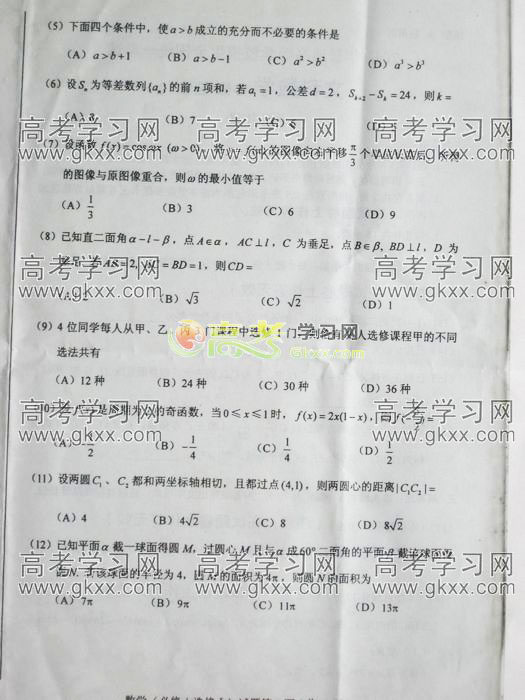 (5) 下面四个条件中，使 a>b 成立的充分而不必要的条件是
(A) a>b+1 (B) a>b-1 (C) a²>b² (D) a³>b³
(6) 设 Sₙ 为等差数列{aₙ}的前 n 项和，若 a₁=1，公差 d=2，Sₖ₊₂-Sₖ=24，则 k=
(A) 8 (B) 7
高考学习网 高考学习网 高考学习网
www.gkxx.com www.gkxx.com www.gkxx.com
(7) 设函数 f(x)=cos ωx (ω>0)，将 的图像向右平移 π/3 个
的图像与原图像重合，则 ω 的最小值等于
(A) 1/3 (B) 3 (C) 6 (D) 9
(8) 已知直二面角 α-l-β，点 A∈α，AC⊥l，C 为垂足，点 B∈β，BD⊥l，D 为
垂足，若 AB=2，AC=BD=1，则 CD=
高考学习网 高考学习网 高考学习网
www.gkxx.com www.gkxx.com www.gkxx.com
(A) 2 (B) √3 (C) √2 (D) 1
(9) 4 位同学每人从甲、乙、丙 3 门课程中选修 1 门，则恰有 2 人选修课程甲的不同
Gkxx.com
选法共有
(A) 12 种 (B) 24 种 (C) 30 种 (D) 36 种
高考学习网 高考学习网 高考学习网
www.gkxx.com www.gkxx.com www.gkxx.com
是周期为 2 的奇函数，当 0≤x≤1 时，f(x)=2x(1-x)，
(B) -1/4 (C) 1/4 (D) 1/2
(11) 设两圆 C₁、C₂ 都和两坐标轴相切，且都过点 (4,1)，则两圆心的距离 |C₁C₂|=
(A) 4 (B) 4√2 (C) 8 (D) 8√2
(12) 已知平面 α 截一球面得圆 M，过圆心 M 且与 α 成 60° 二面角的平面 β 截该球面得
圆 N．若该球面的半径为 4，圆 M 的面积为 4π，则圆 N 的面积为
高考学习网 高考学习网 高考学习网
www.gkxx.com www.gkxx.com www.gkxx.com
(A) 7π (B) 9π (C) 11π (D) 13π